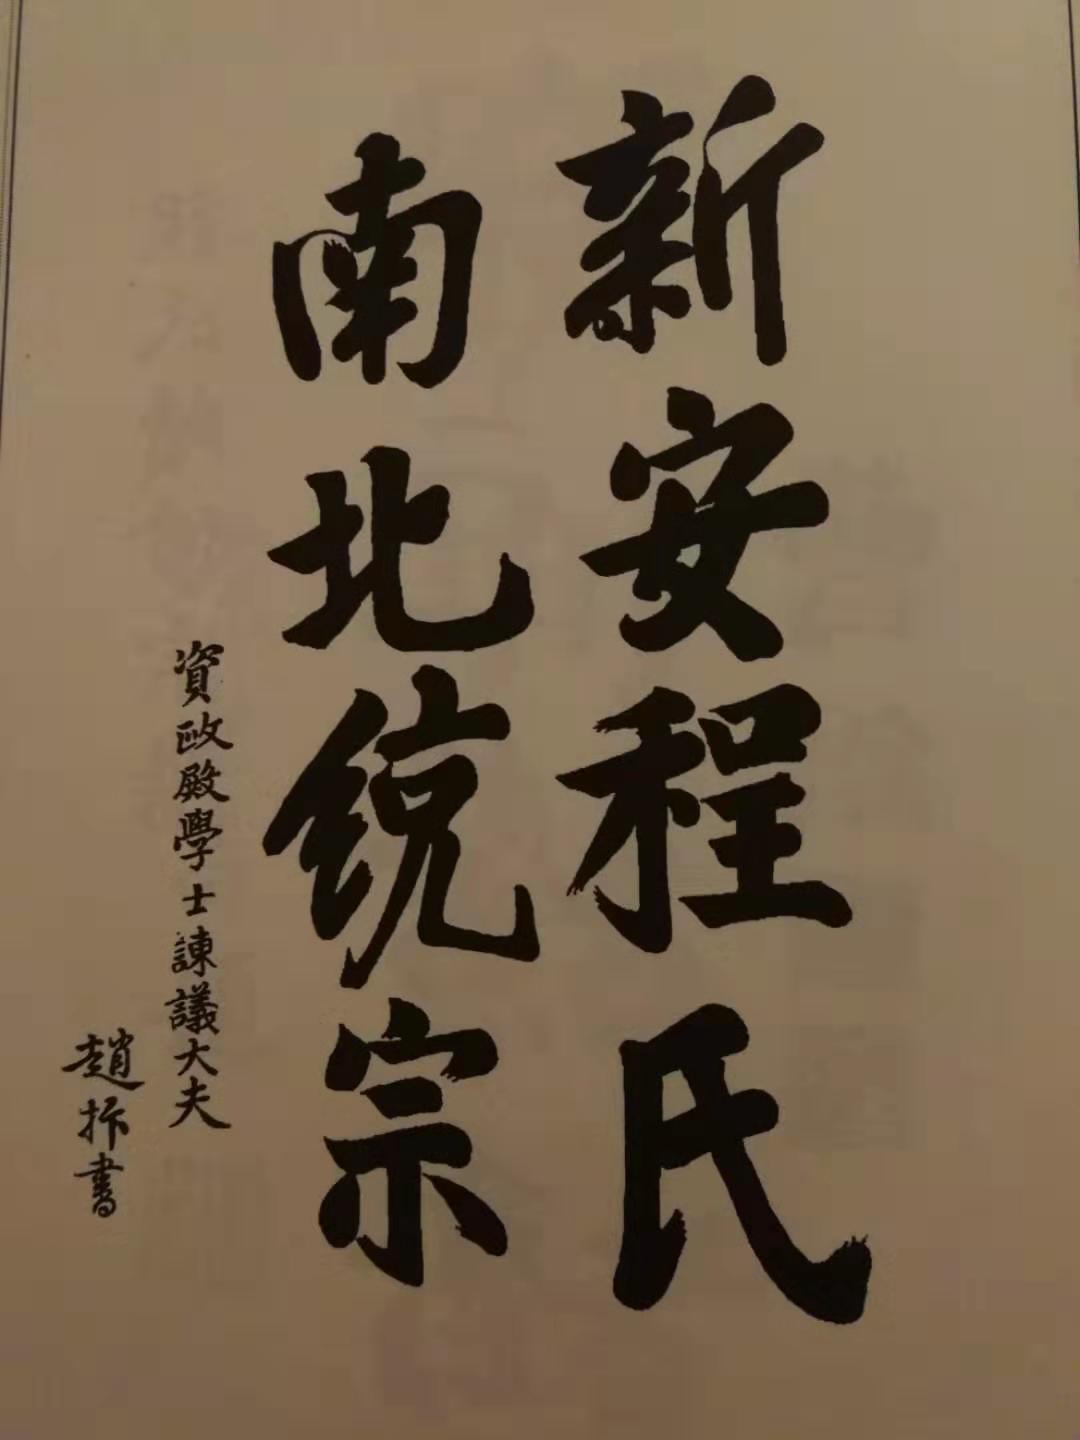 新安程氏
南北統宗
資政殿學士諫議大夫
趙抃書